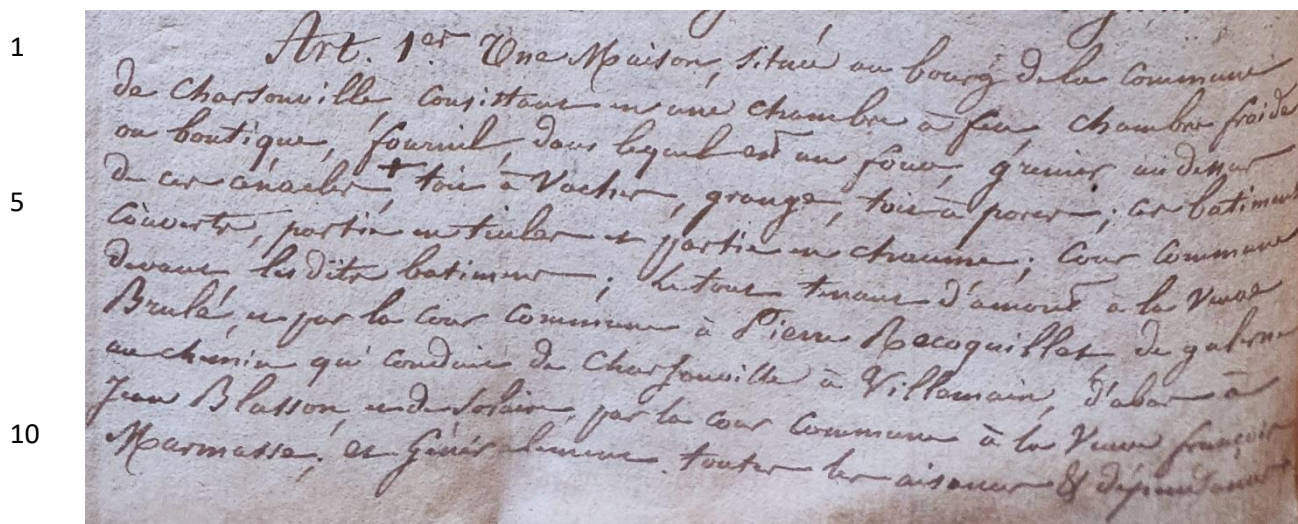 1
Art. 1er. Une Maison, située au bourg de la Commune
de Charsonville, Consistant en une chambre à feu, chambre froide
ou boutique, fournil, dans lequel est un four, grenier au dessus
5
de ces +, toit à Vaches, grange, toit à porcs; ces batiments
Couverts, partie en tuiles et partie en chaume; Cour Commune
devant lesdits batiments; Le tout tenant d'amont à la Veuve
Brulé, et par la Cour Commune à Pierre Recoquillet, de galerne
au chemin qui Conduit de Charsonville à Villemain, d'abas à
10
Jean Blasson, et de Solaire, par la cour Commune à la Veuve françois
Marmasse; et Généralement toutes les aisances & dépendances